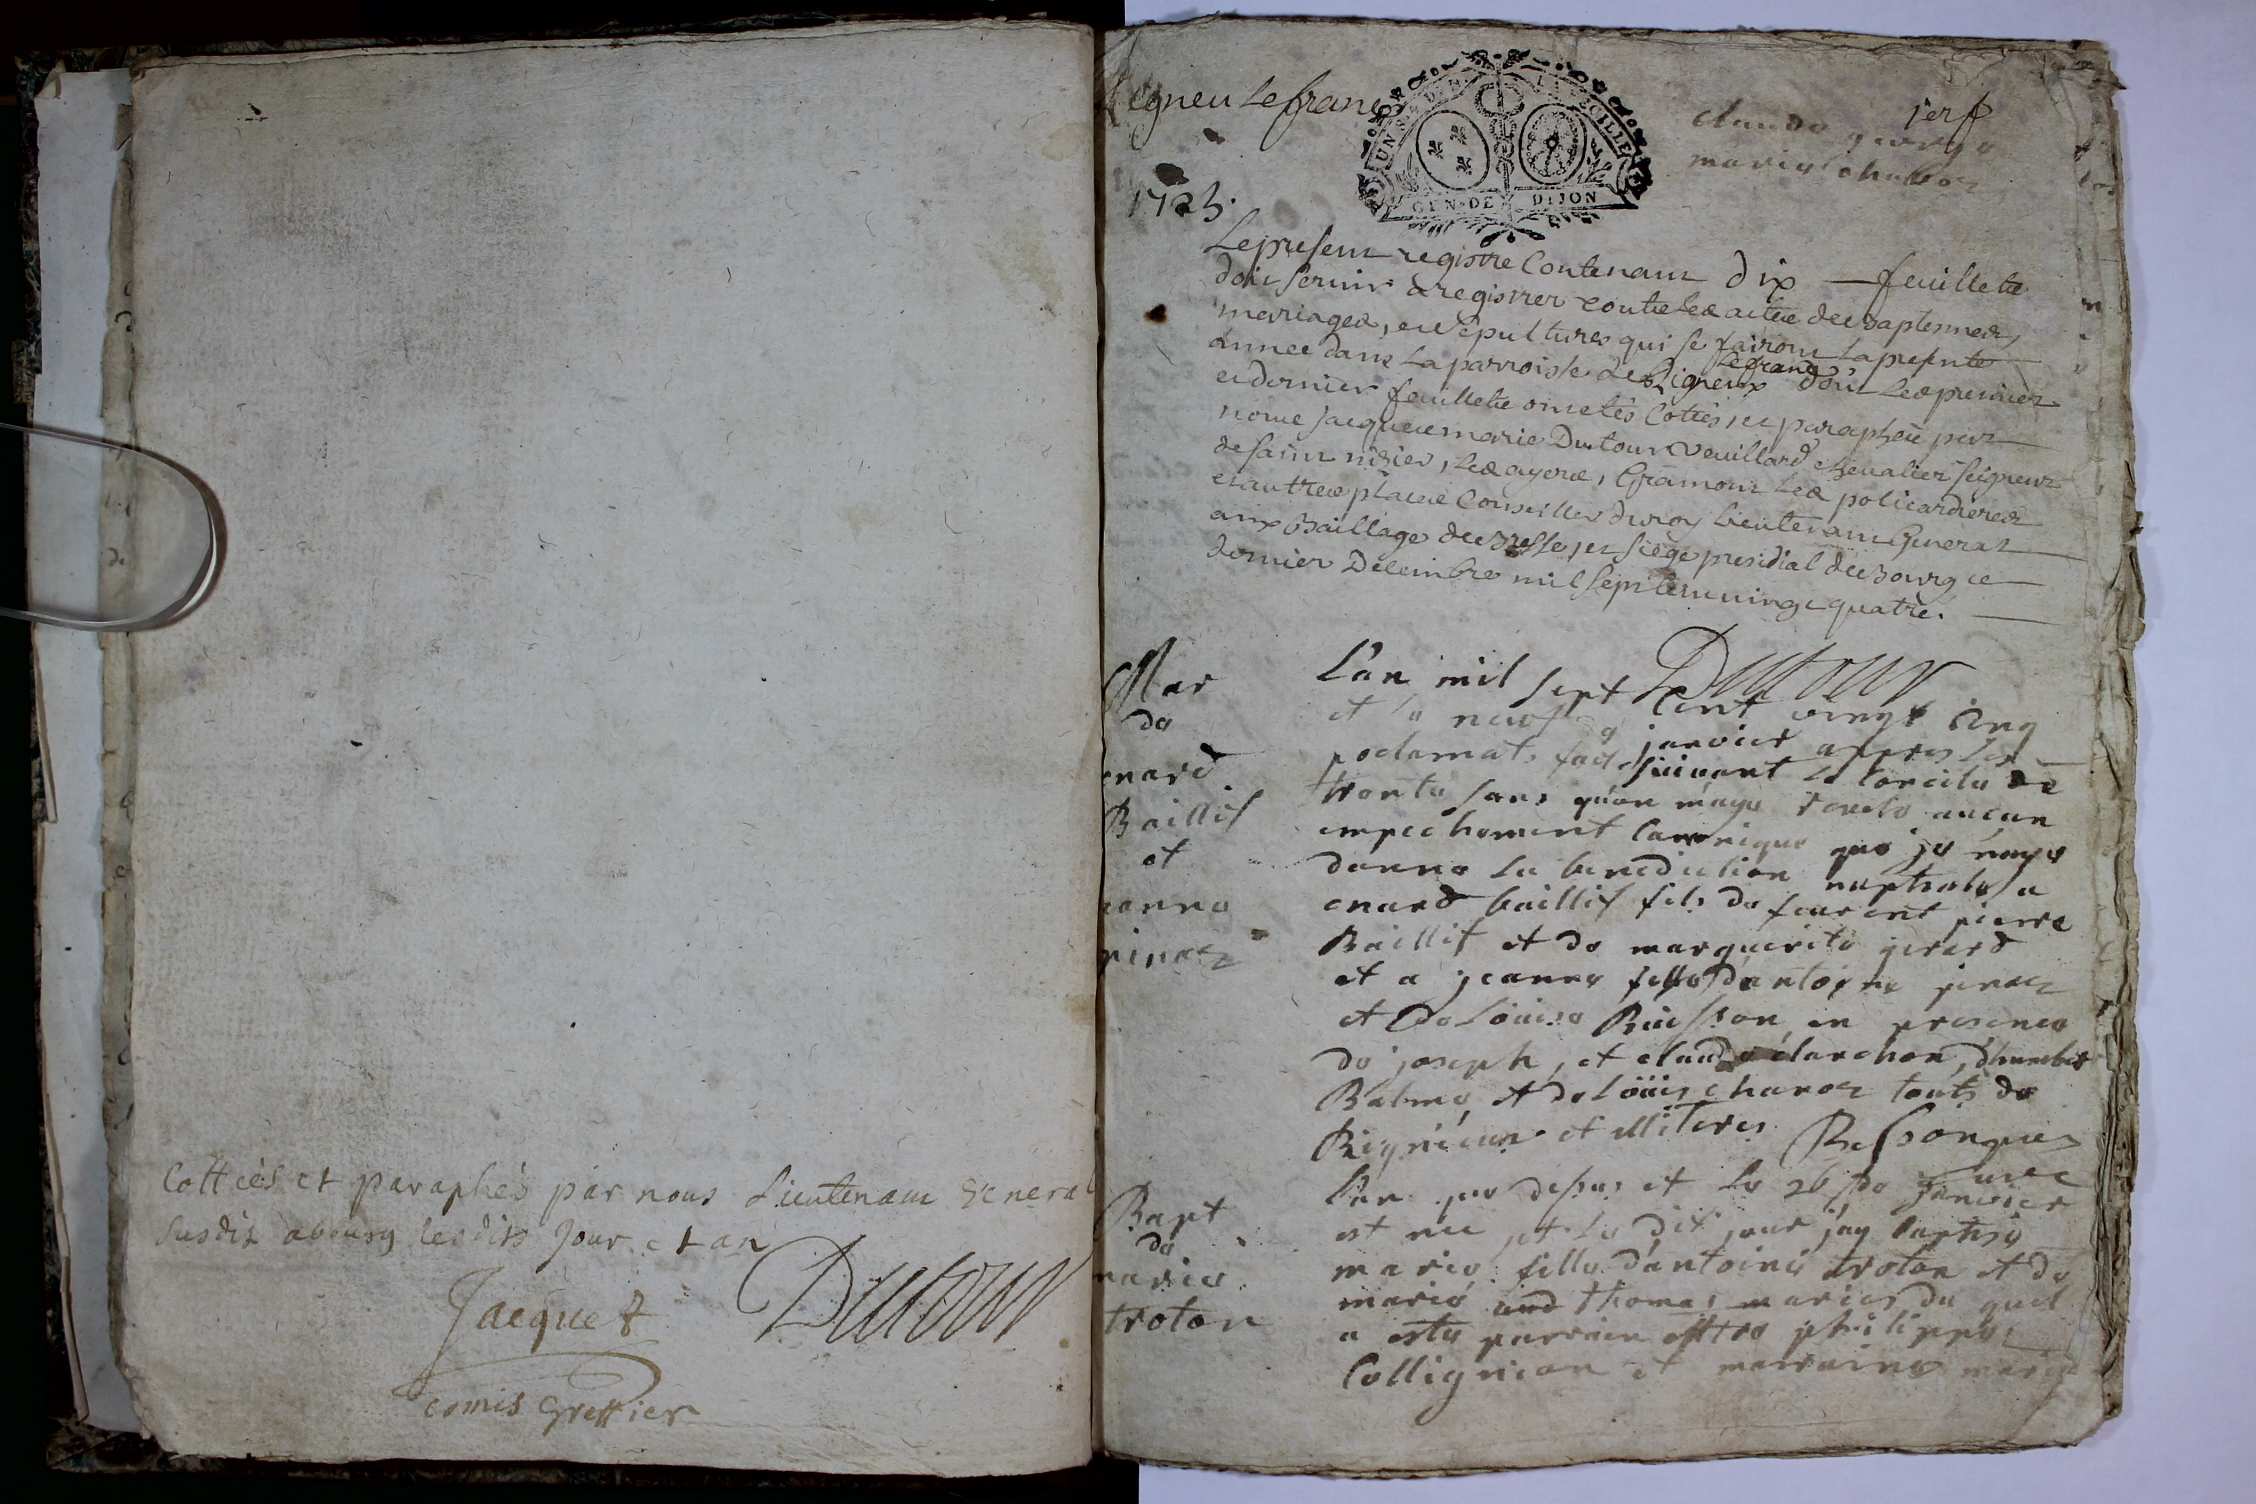 Cottées et paraphés par nous Lieutenant General
susdit a bourg lesdits jour et an
Jacquet Dutour
comis Greffier
Rigneu le franc
1er f
claude
marie chanoz
1725.
UN S. 8 DEN. LA FEUILLE
GEN. DE DIJON
Le present registre contenant dix feuillets
doit servir a registrer toutes les actes de baptemes,
mariages, et sepultures qui se fairont la presente
annee dans la parroisse de Rigneux le franc dont les premier
et dernier feuillets ont etés cottés, et paraphés par
nous jacques marie Dutour Veuillard chevalier seigneur
de saint nizier, les ayers, Gramont les policardieres
et autres places Conseiller du roy lieutenant General
aux Baillage de Bresse, et siege presidial de Bourg ce
dernier Decembre mil sept cent vingt quatre.
Dutour
Mar
de
enard
Baillif
et
jeanne
pinoz
L'an mil sept cent vingt cinq
et le neuf janvier apres les
proclamat. fait suivant le concile de
trente sans qu'on m'aye revelé aucun
empechement canonique que je n'aye
donne la benediction nuptiale a
enard baillif fils de feu pierre
Baillif et de marguerite girard
et a jeanne fille d'antoine pinoz
et de Loüise Buisson, en presence
de joseph, et claude clarchon, d'humbert
Balme, et de Loüis chanoz touts de
Rignieux et illiteres. Bessongues
curé
Bapt
de
marie
troton
L'an que dessus et le 26 de janvier
est née et le dit jour j'ay baptisé
marie fille d'antoine troton et de
marie thomas mariés, du quel
a esté parrain philippe
Collignion et marraine marie